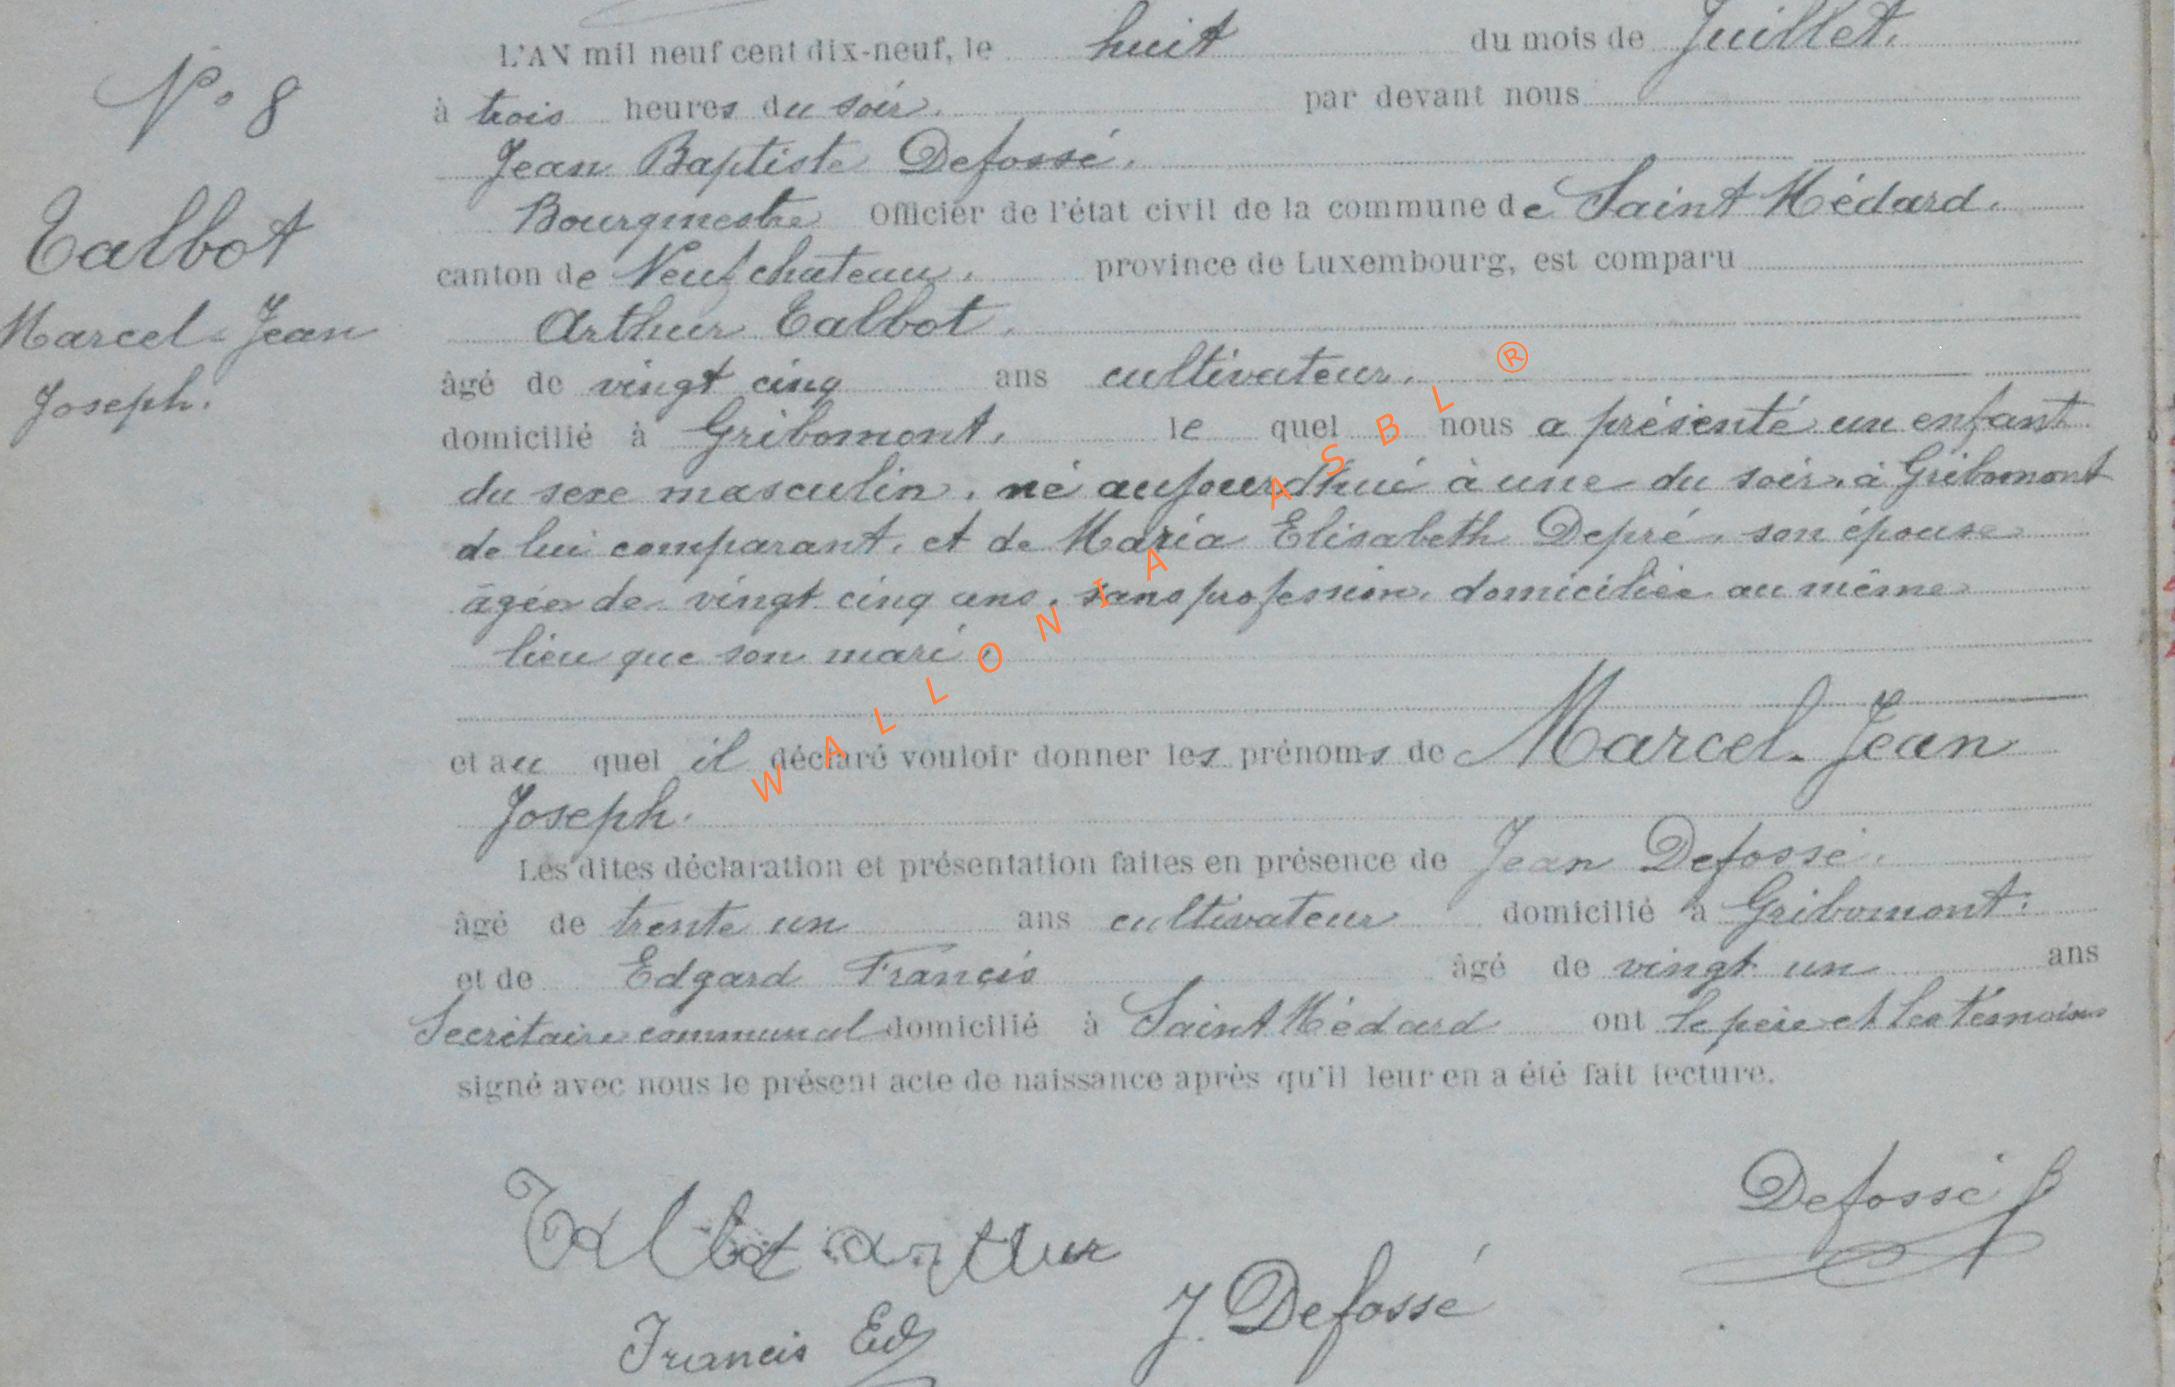 N° 8
Talbot
Marcel-Jean
Joseph.
L'AN mil neuf cent dix-neuf, le huit du mois de Juillet.
à trois heures du soir. par devant nous
Jean Baptiste Defossé.
Bourgmestre Officier de l'état civil de la commune de Saint Médard.
canton de Neufchateau. province de Luxembourg, est comparu
Arthur Talbot.
âgé de vingt cinq ans cultivateur.
domicilié à Gribomont, le quel nous a présenté un enfant
du sexe masculin, né aujourdhui à une du soir, à Gribomont
de lui comparant, et de Maria Elisabeth Depré, son épouse
âgée de vingt cinq ans, sans profession, domiciliée au même
lieu que son mari.
et au quel il déclaré vouloir donner les prénoms de Marcel-Jean
Joseph.
Les dites déclaration et présentation faites en présence de Jean Defossé.
âgé de trente un ans cultivateur domicilié à Gribomont.
et de Edgard Francis âgé de vingt un ans
Secrétaire communal domicilié à Saint Médard ont le père et les témoins
signé avec nous le présent acte de naissance après qu'il leur en a été fait lecture.
Talbot arthur
Defossé
Francis Ed
J. Defossé
WALLONIA ASBL ®